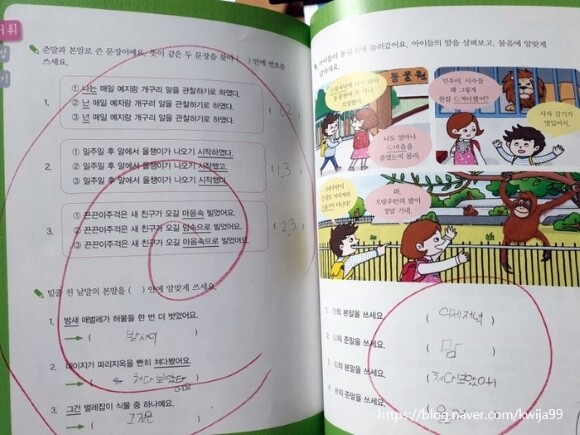 어휘
준말과 본말로 쓴 문장이에요. 뜻이 같은 두 문장을 찾아 ( ) 안에 번호를
쓰세요.
1. ① 나는 매일 예지랑 개구리 알을 관찰하기로 하였다.
② 난 매일 예지랑 개구리 알을 관찰하기로 하였다.
③ 넌 매일 예지랑 개구리 알을 관찰하기로 하였다.
2. ① 일주일 후 알에서 올챙이가 나오기 시작하였다.
② 일주일 후 알에서 올챙이가 나오기 시작했고
③ 일주일 후 알에서 올챙이가 나오기 시작했다.
( 1 3 )
3. ① 끈끈이주걱은 새 친구가 오길 마음속 빌었어요.
② 끈끈이주걱은 새 친구가 오길 맘속으로 빌었어요.
③ 끈끈이주걱은 새 친구가 오길 마음속으로 빌었어요.
( 2 3 )
밑줄 친 낱말의 본말을 ( ) 안에 알맞게 쓰세요.
1. 밤새 애벌레가 허물을 한 번 더 벗었어요.
( 밤사이 )
2. 데이지가 파리지옥을 빤히 쳐다봤어요.
3. 그건 벌레잡이 식물 중 하나예요.
( 그것은 )
아이들이 동물원에 놀러갔어요. 아이들의 말을 살펴보고, 물음에 알맞게
답하세요.
동물원
민주야, 사자를
왜 그렇게
한참 쳐다봤어?
사자 갈기가
멋있어서.
나도 얼마나
마음을
졸였는지 몰라.
와,
오랑우탄의 팔이
정말 기네.
1. ㉠의 본말을 쓰세요.
( 어제저녁 )
2. ㉡의 준말을 쓰세요.
( 맘 )
3. ㉢의 본말을 쓰세요.
( 쳐다보았어 )
4. ㉣의 준말을 쓰세요.
https://blog.naver.com/kwija99